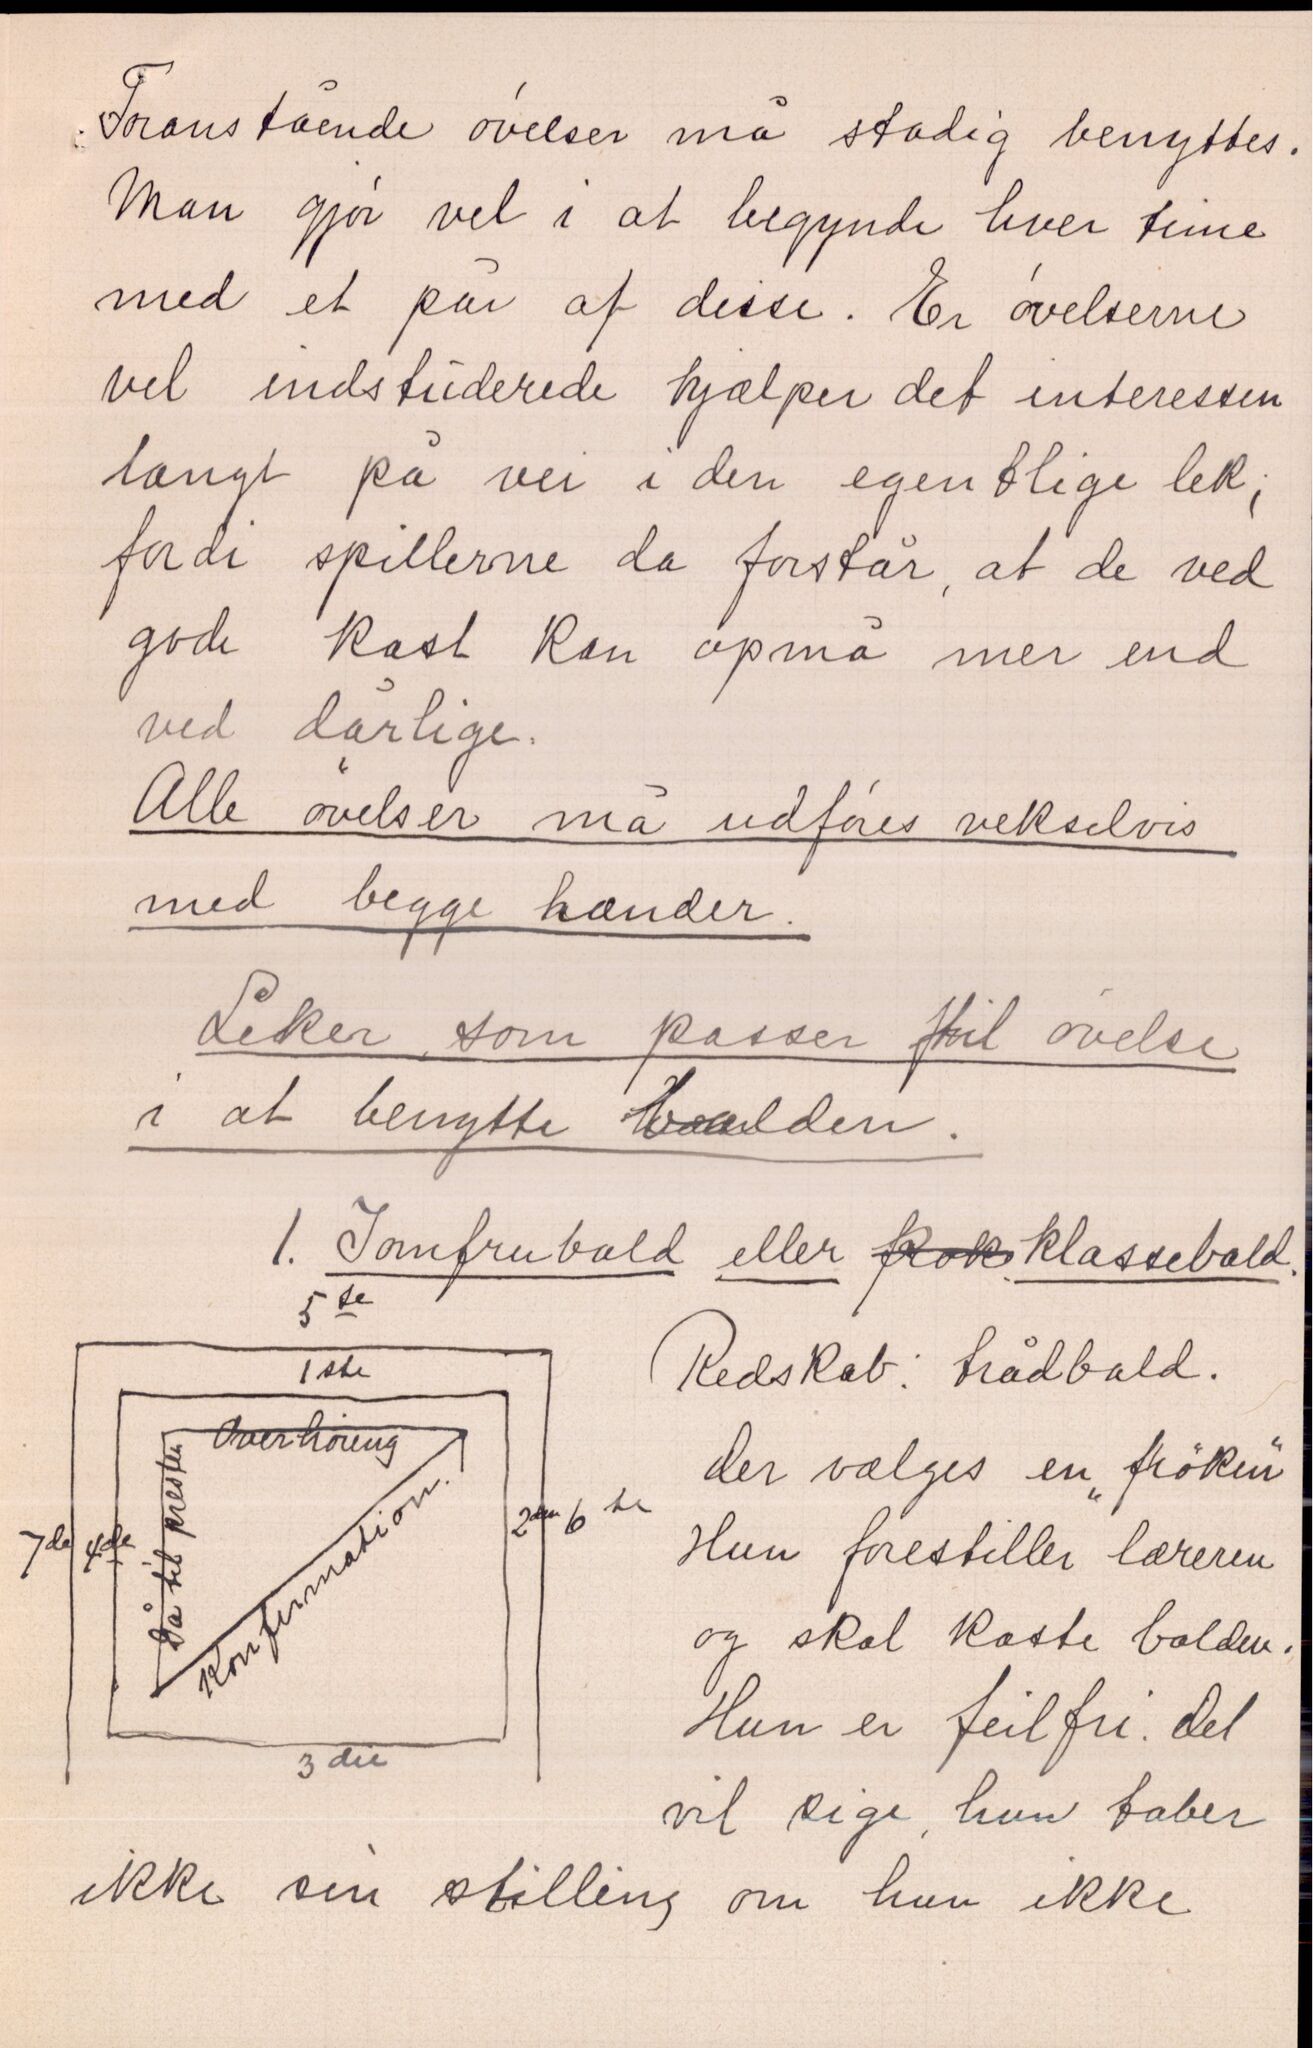 Foranstående øvelser må stadig benyttes.
Man gjør vel i at begynde hver time
med et par af disse. Er øvelserne
vel indstuderede hjælper det interessen
langt på vei i den egentlige lek;
fordi spillerne da forstår, at de ved
gode kast kan opnå mer end
ved dårlige.
Alle øvelser må udføres vekselvis
med begge hænder.
Leker som passer til øvelse
i at benytte balden.
1. Jomfrubald eller klassebald.
5te
1ste
Overhøring
Gå til presten
Konfirmation.
7de 4de
2den 6te
3die
Redskab: trådbald.
der vælges en „frøken"
Hun forestiller læreren
og skal kaste balden.
Hun er feilfri. del
vil sige, hun taber
ikke sin stilling om hun ikke